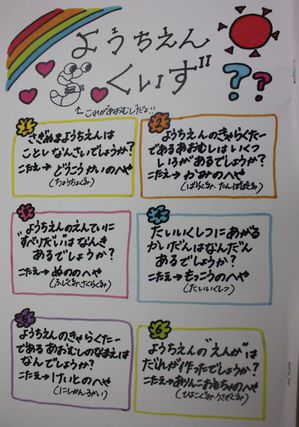 ようちえん
くいず
??
↑これがあおむしだよ!!
さぎぬまようちえんは
ことしなんさいでしょうか?
こたえ→どうこうかいのへや
ようちえんのきゃらくたー
であるあおむしはいくつ
いろがあるでしょうか?
こたえ→かみのへや
ようちえんのえんていに
すべりだいはなんき
あるでしょうか?
こたえ→ぬののへや
たいいくしつにあがる
かいだんはなんだん
あるでしょうか?
こたえ→もっこうのへや
(たいいくしつ)
ようちえんのきゃらくたー
であるあおむしのなまえは
なんでしょうか?
こたえ→けいとのへや
ようちえんの"えんか"は
だれが作ったでしょうか?
こたえ→ありんこおもちゃのへや